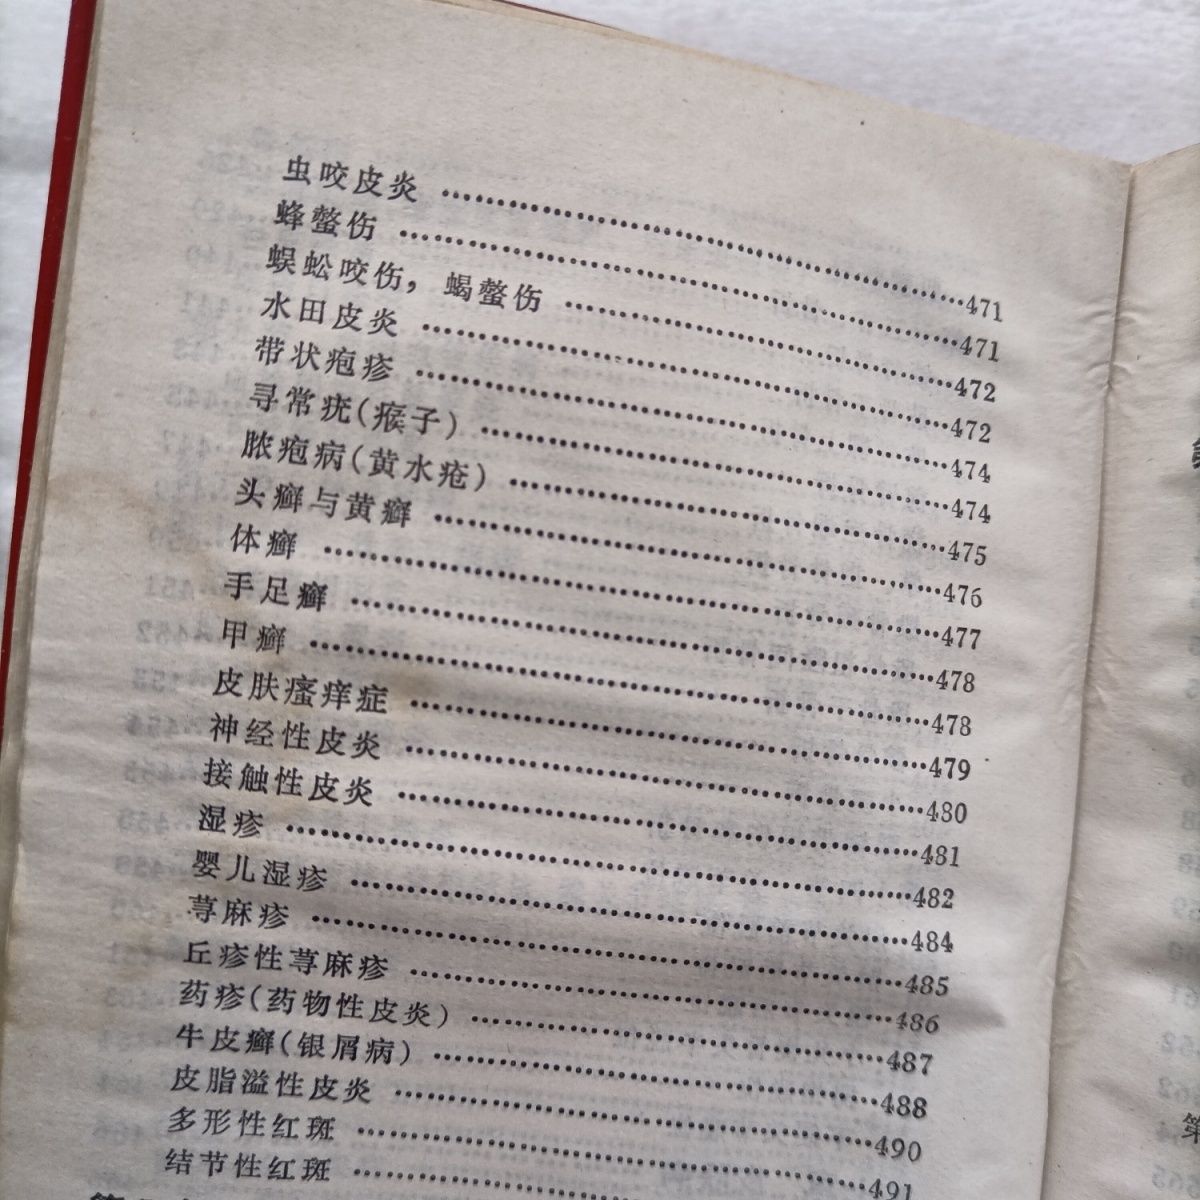 虫咬皮炎 ……471
蜂螫伤 ……471
蜈蚣咬伤，蝎螫伤 ……472
水田皮炎 ……472
带状疱疹 ……474
寻常疣(瘊子) ……474
脓疱病(黄水疮) ……475
头癣与黄癣 ……476
体癣 ……477
手足癣 ……478
甲癣 ……478
皮肤瘙痒症 ……479
神经性皮炎 ……480
接触性皮炎 ……481
湿疹 ……482
婴儿湿疹 ……484
荨麻疹 ……485
丘疹性荨麻疹 ……486
药疹(药物性皮炎) ……487
牛皮癣(银屑病) ……488
皮脂溢性皮炎 ……490
多形性红斑 ……491
结节性红斑 ……